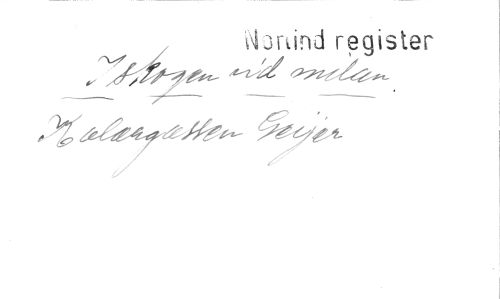 Norlind register
I skogen vid milan.
Kolargossen Geijer